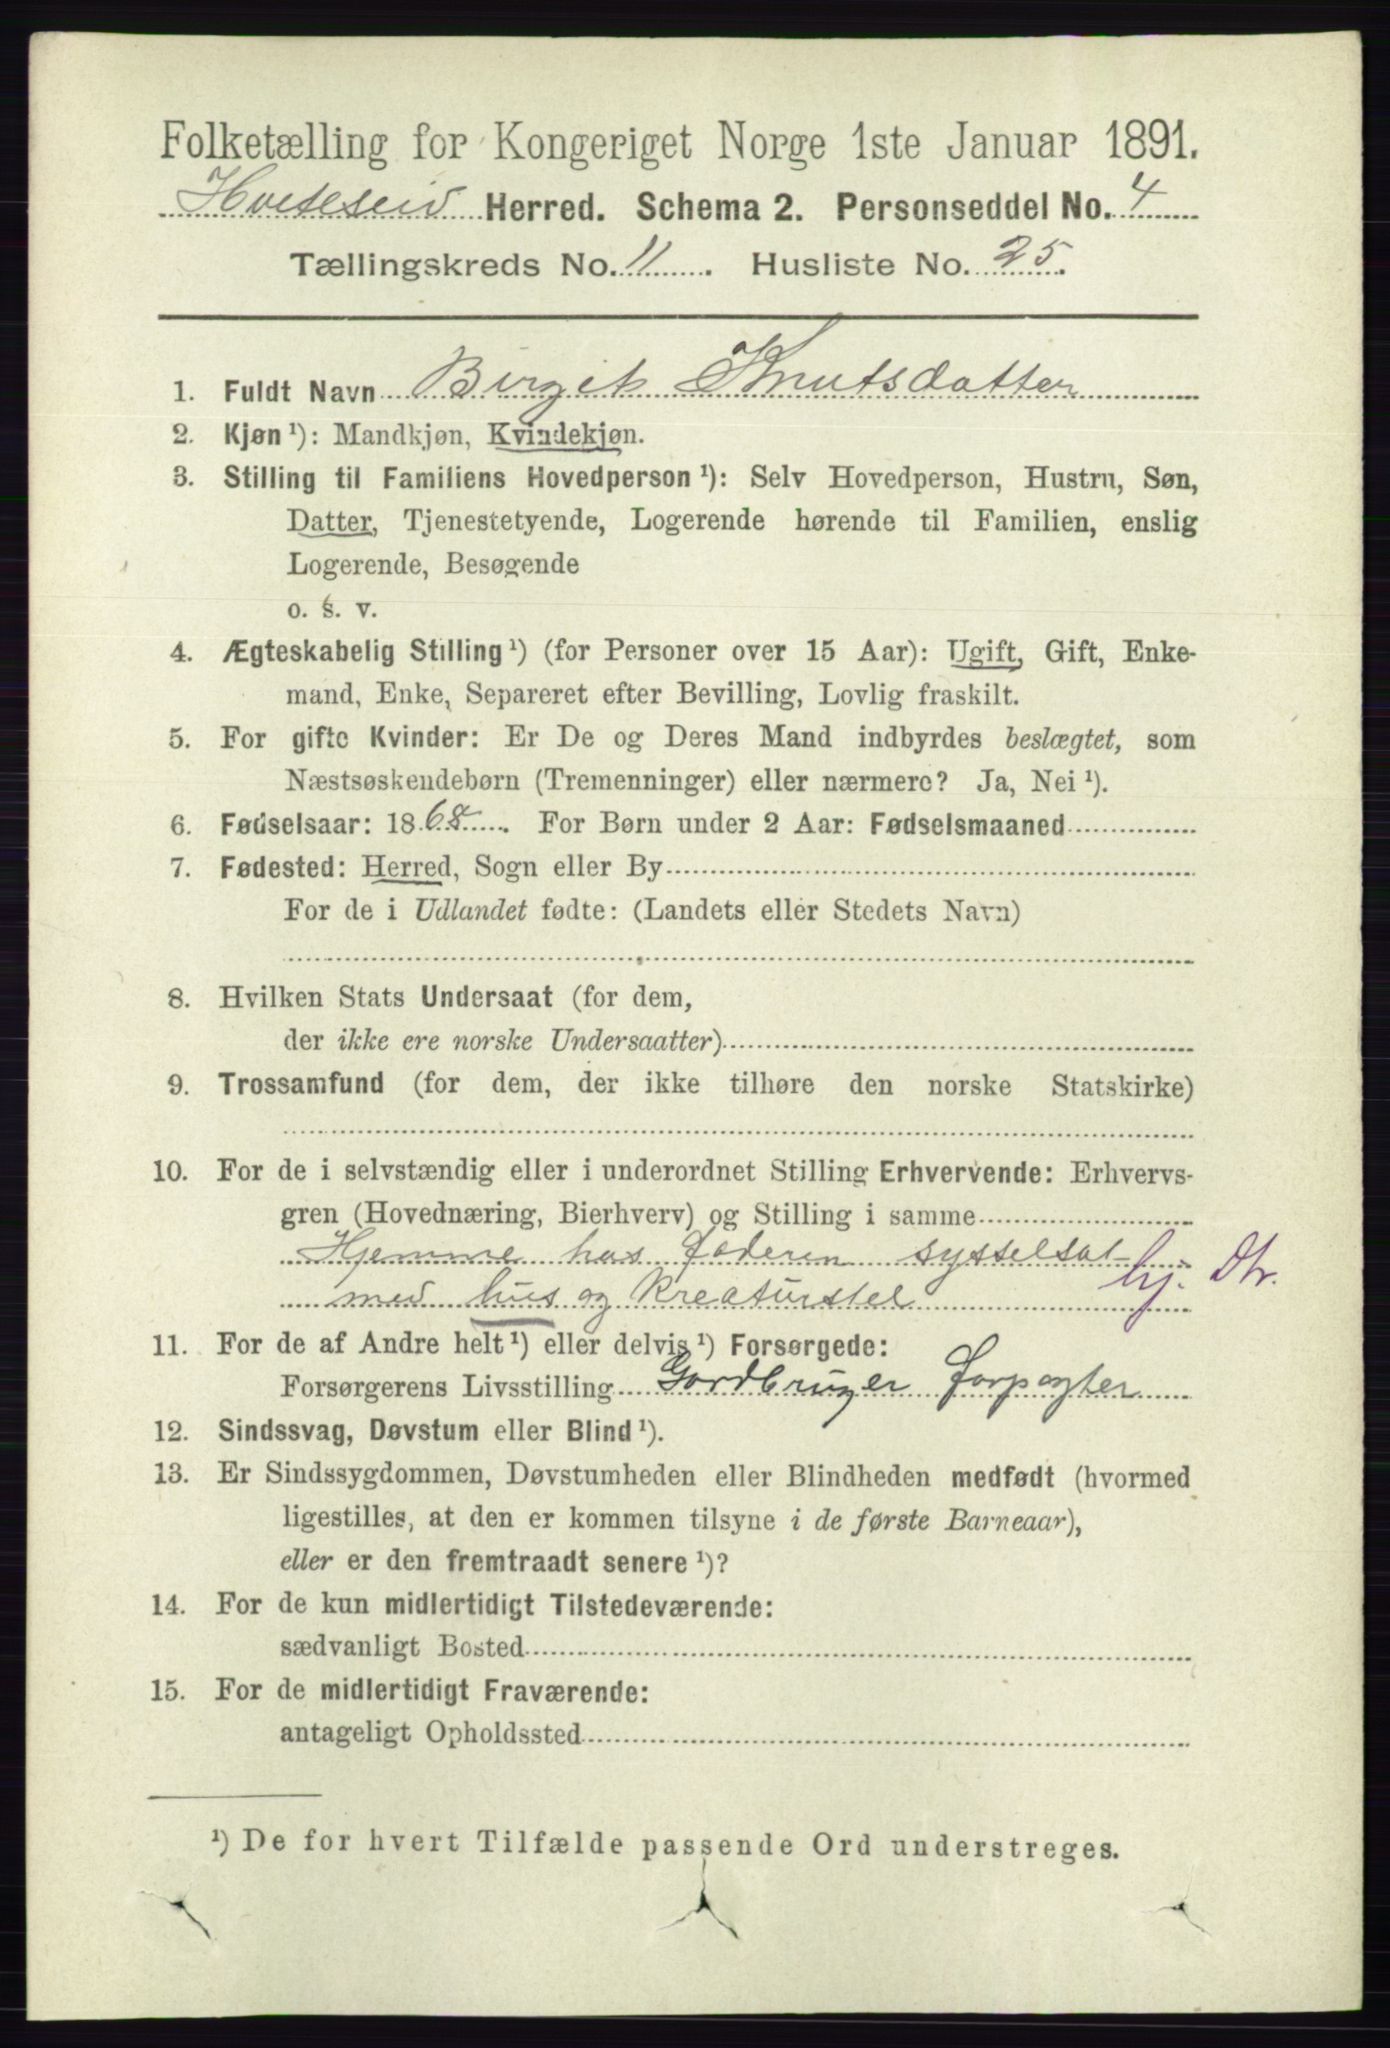 Folketælling for Kongeriget Norge 1ste Januar 1891.
Hviteseid Herred. Schema 2. Personseddel No. 4
Tællingskreds No. 11. Husliste No. 25.
1. Fuldt Navn Birgit Knutsdatter
2. Kjøn ¹): Mandkjøn, Kvindekjøn.
3. Stilling til Familiens Hovedperson ¹): Selv Hovedperson, Hustru, Søn,
Datter, Tjenestetyende, Logerende hørende til Familien, enslig
Logerende, Besøgende
o. s. v.
4. Ægteskabelig Stilling ¹) (for Personer over 15 Aar): Ugift, Gift, Enke-
mand, Enke, Separeret efter Bevilling, Lovlig fraskilt.
5. For gifte Kvinder: Er De og Deres Mand indbyrdes beslægtet, som
Næstsøskendebørn (Tremenninger) eller nærmere? Ja, Nei ¹).
6. Fødselsaar: 1868. For Børn under 2 Aar: Fødselsmaaned
7. Fødested: Herred, Sogn eller By
For de i Udlandet fødte: (Landets eller Stedets Navn)
8. Hvilken Stats Undersaat (for dem,
der ikke ere norske Undersaatter)
9. Trossamfund (for dem, der ikke tilhøre den norske Statskirke)
10. For de i selvstændig eller i underordnet Stilling Erhvervende: Erhvervs-
gren (Hovednæring, Bierhverv) og Stilling i samme
Hjemme hos Faderen sysselsat
med hus og Kreaturstel hj. Dtr.
11. For de af Andre helt ¹) eller delvis ¹) Forsørgede:
Forsørgerens Livsstilling Gardbruger Forpagter
12. Sindssvag, Døvstum eller Blind ¹).
13. Er Sindssygdommen, Døvstumheden eller Blindheden medfødt (hvormed
ligestilles, at den er kommen tilsyne i de første Barneaar),
eller er den fremtraadt senere ¹)?
14. For de kun midlertidigt Tilstedeværende:
sædvanligt Bosted
15. For de midlertidigt Fraværende:
antageligt Opholdssted
¹) De for hvert Tilfælde passende Ord understreges.